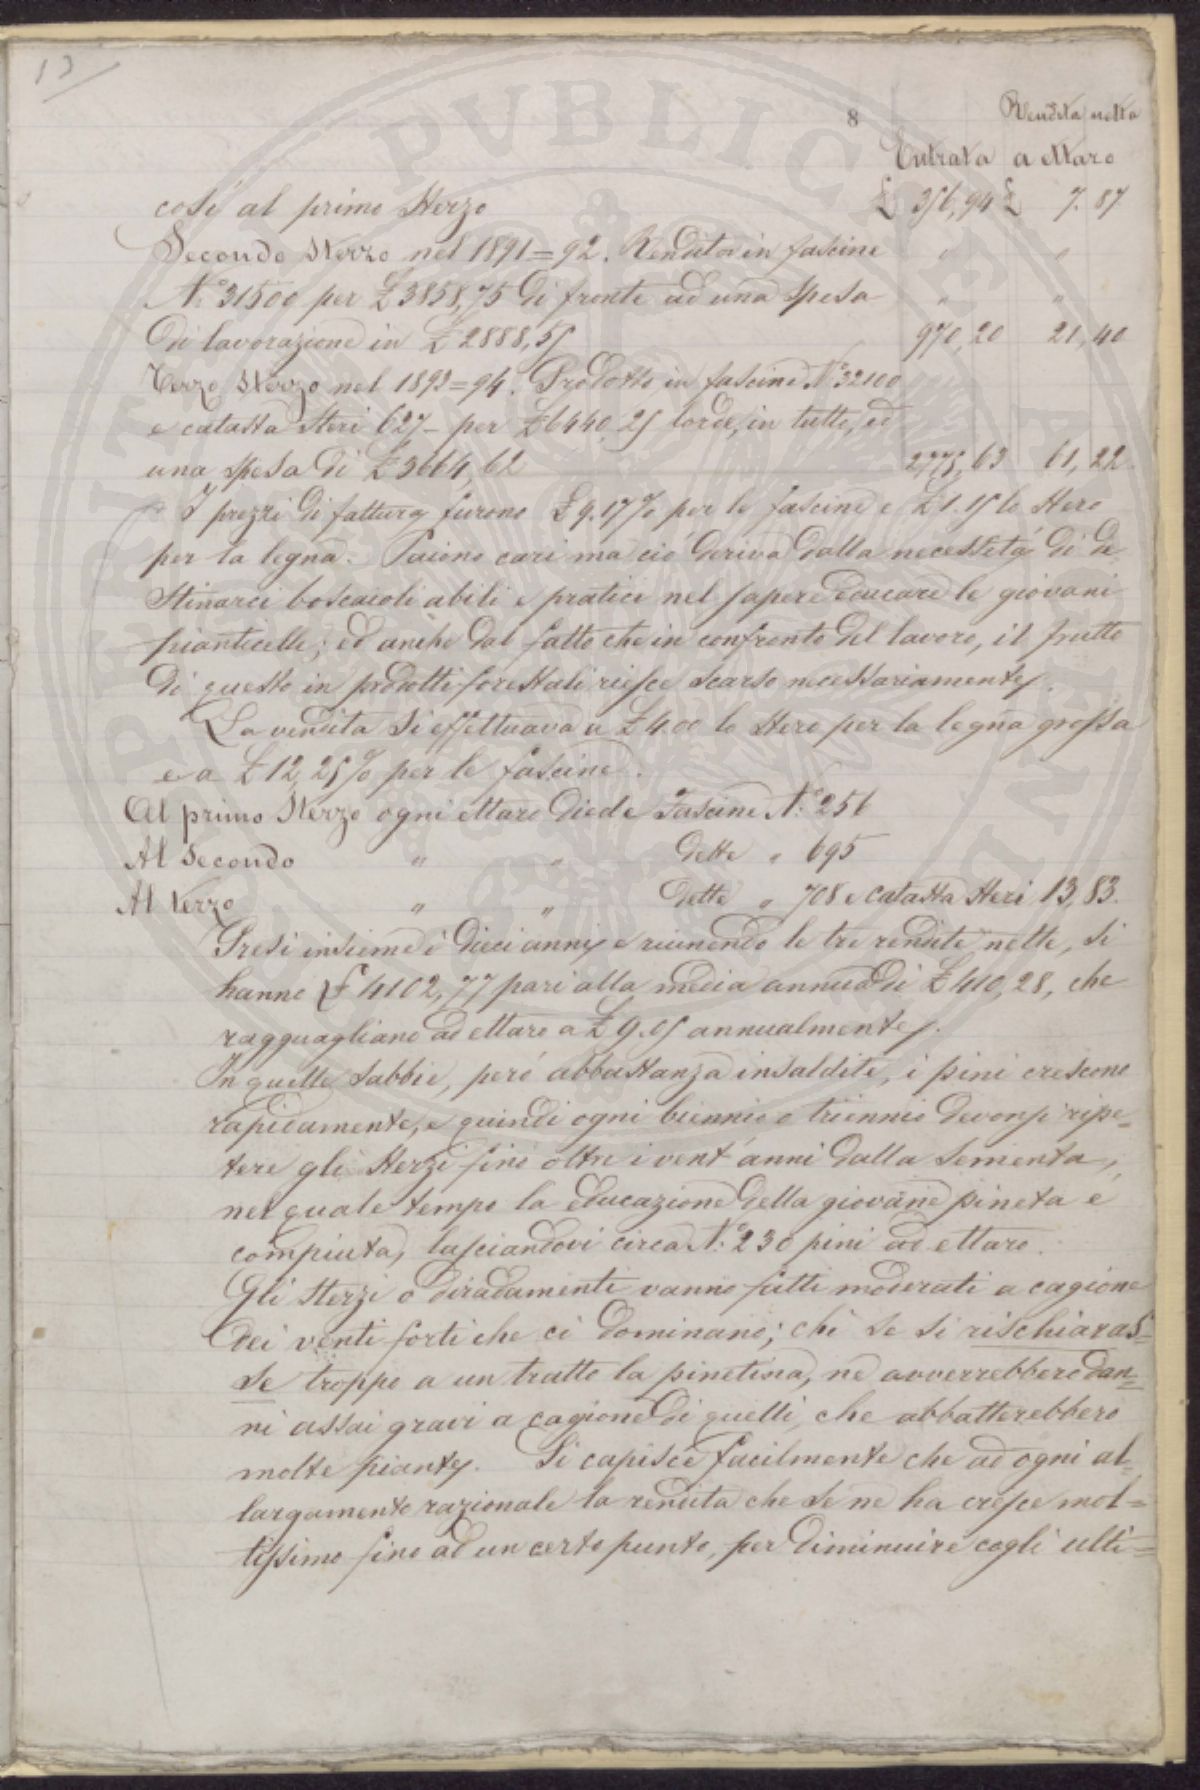 13
8
Rendita netta
Entrata a ettaro
così al primo sterzo £ 356,94 £ 7.87
Secondo sterzo nel 1891=92. Rendita in fascine " "
N.° 31500 per £ 3858,75 di fronte ad una spesa " "
di lavorazione in £ 2888,55 970,20 21,40
Terzo sterzo nel 1893=94. Prodotto in fascine N.° 32100
e catasta steri 627- per £ 6440,25 lorde, in tutto, ed
una spesa di £ 3664,62 2775,63 61,22
I prezzi di fattura furono £ 9.17% per le fascine e £ 1.15 lo stero
per la legna. Paiono cari ma ciò deriva dalla necessità di de=
stinarci boscaioli abili e pratici nel sapere educare le giovani
pianticelle; ed anche dal fatto che in confronto del lavoro, il frutto
di questo in prodotti forestali riesce scarso necessariamente.
La vendita si effettuava a £ 4.00 lo stero per la legna grossa
e a £ 12,25% per le fascine.
Al primo sterzo ogni ettaro diede Fascine N.° 256
Al secondo " " dette " 695
Al terzo " " dette " 708 e catasta steri 13,83.
Presi insieme i dieci anni e riunendo le tre rendite nette, si
hanno £ 4102,77 pari alla media annua di £ 410,28, che
ragguagliano ad ettaro a £ 9.05 annualmente.
In quelle sabbie, però abbastanza insaldite, i pini crescono
rapidamente, e quindi ogni biennio o triennio devonsi ripe=
tere gli sterzi fino oltre i vent'anni dalla sementa,
nel quale tempo la educazione della giovane pineta è
compiuta, lasciandovi circa N.° 230 pini ad ettaro.
Gli sterzi o diradamenti vanno fatti moderati a cagione
dei venti forti che ci dominano; chè se si rischiaras=
se troppo a un tratto la pinetina, ne avverrebbero dan=
ni assai gravi a cagione di quelli, che abbatterebbero
molte piante. Si capisce facilmente che ad ogni al=
largamento razionale la rendita che se ne ha cresce mol=
tissimo fino ad un certo punto, per diminuire cogli ulti=
PUBLICAE